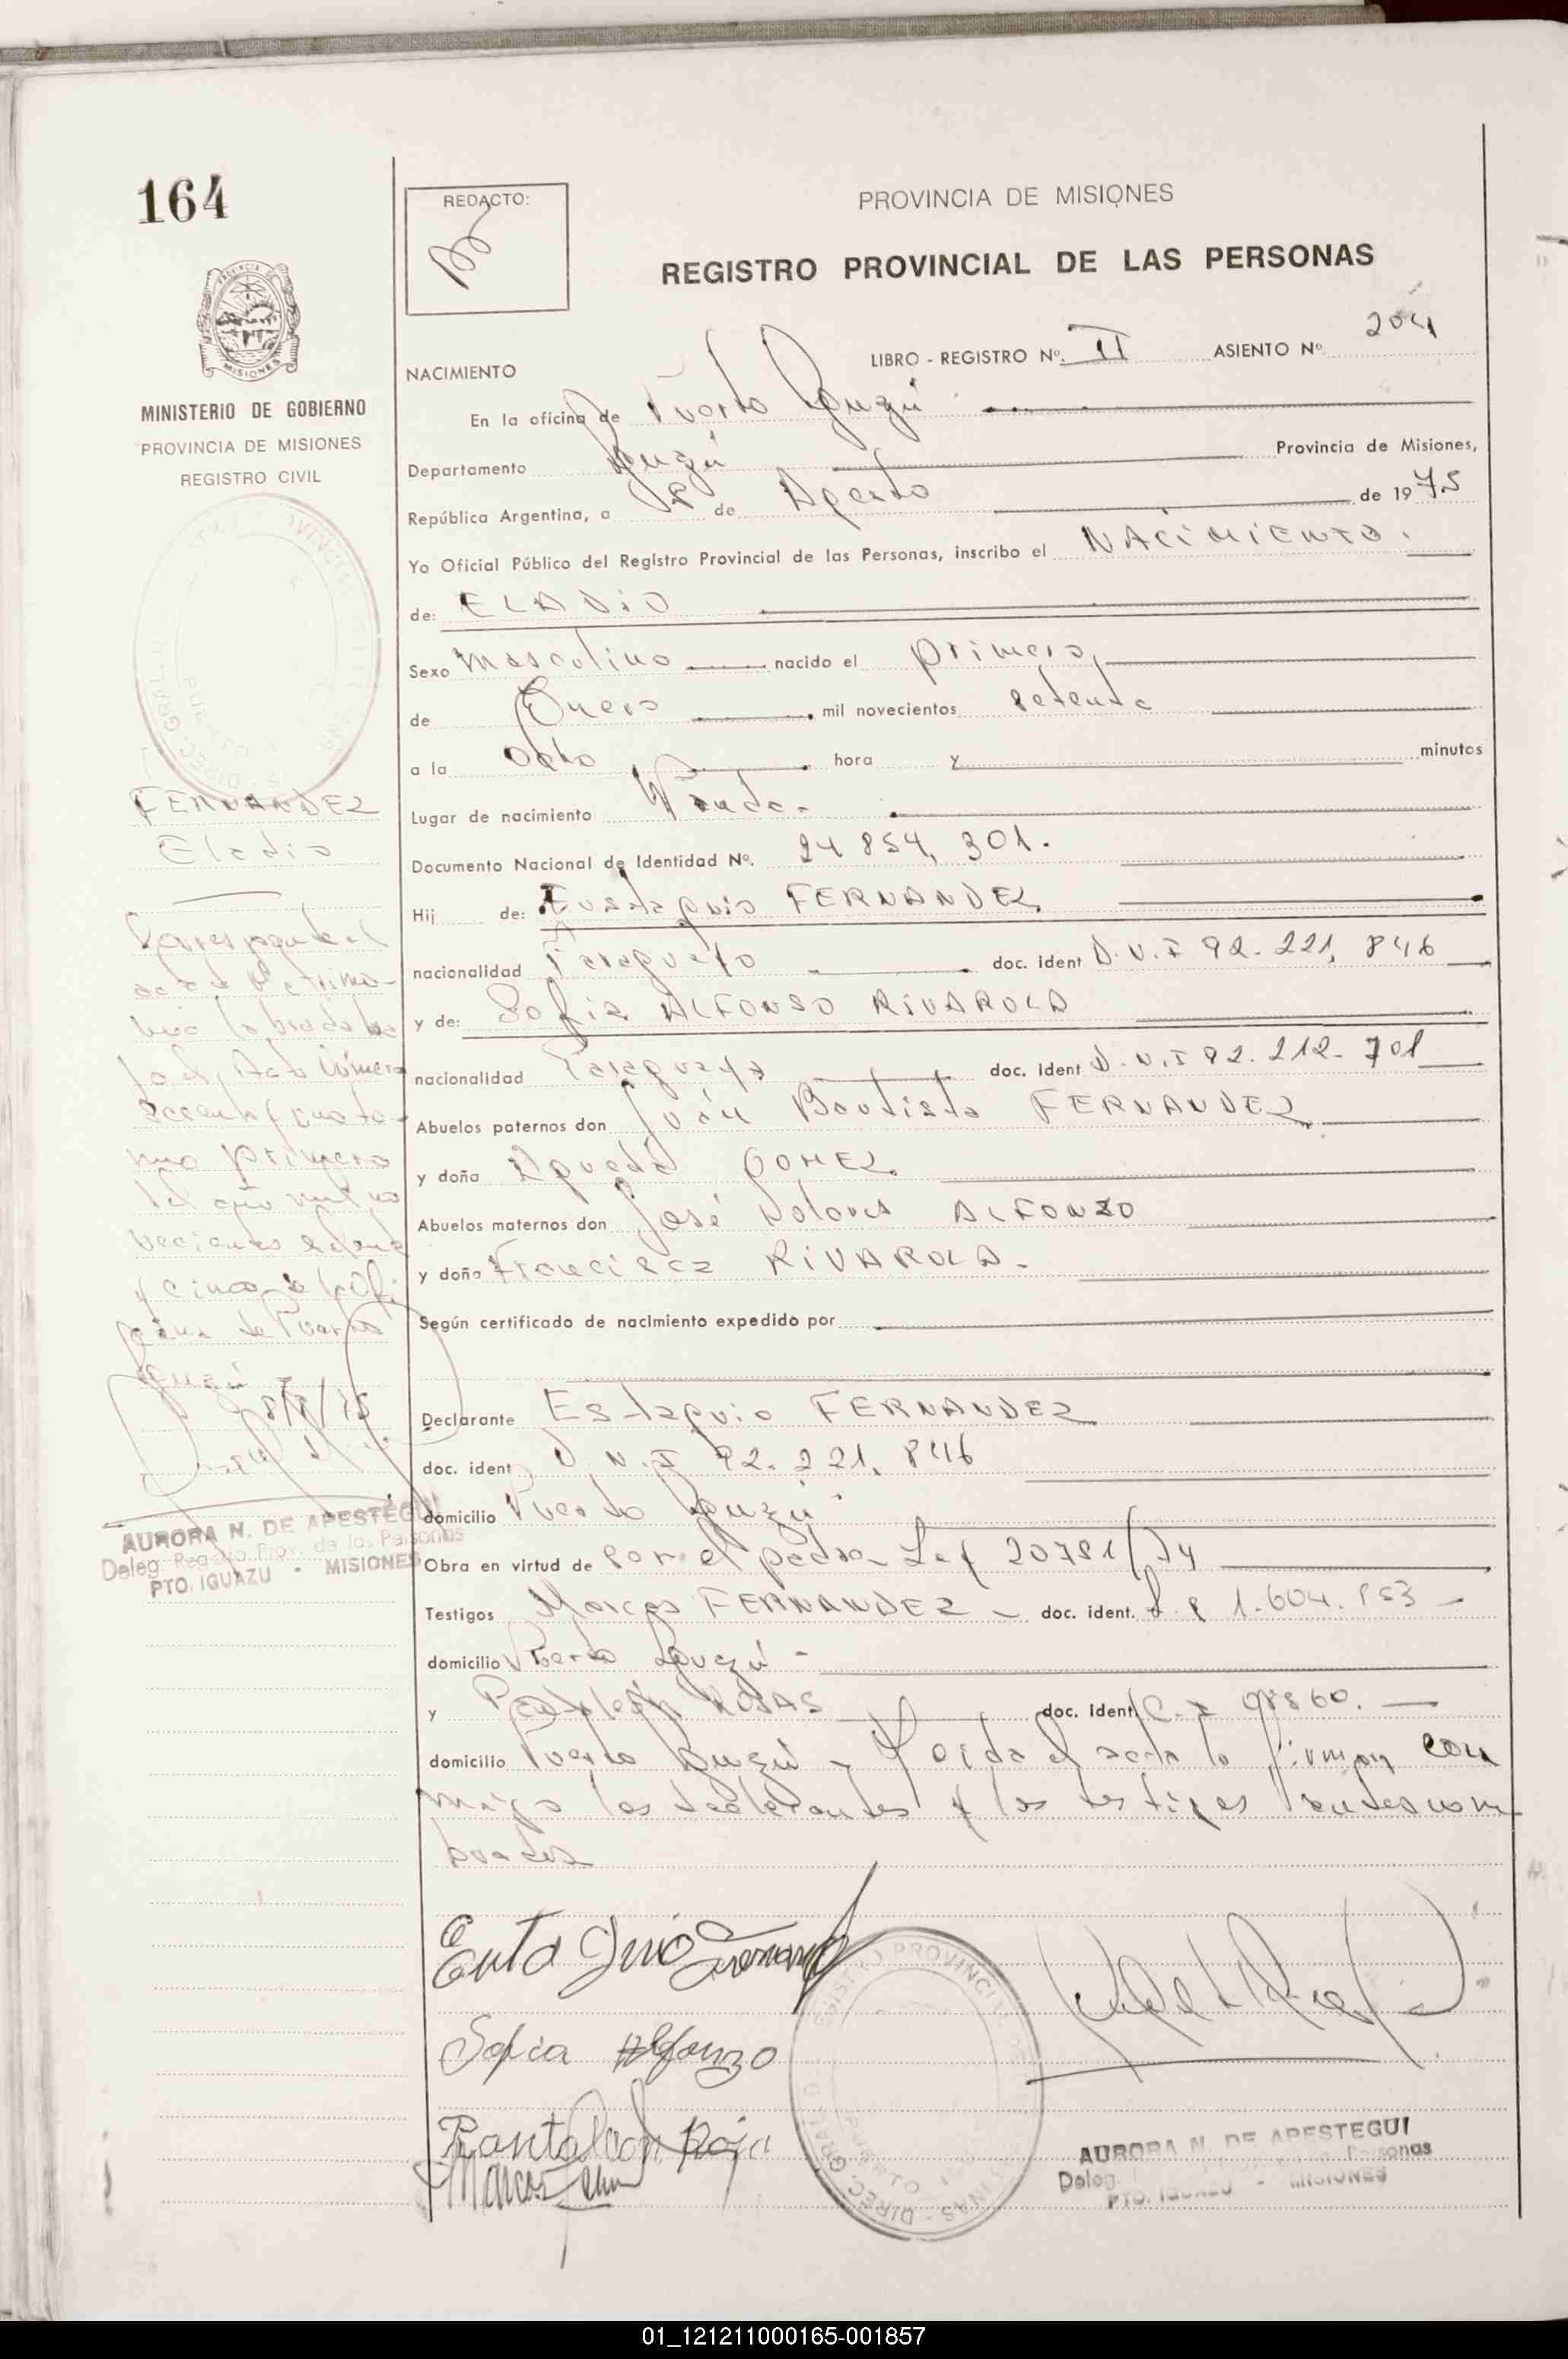 164
REDACTO:
PROVINCIA DE MISIONES
REGISTRO PROVINCIAL DE LAS PERSONAS
LIBRO - REGISTRO Nº. II ASIENTO Nº 204
NACIMIENTO
En la oficina de Puerto Iguazú
Departamento Iguazú Provincia de Misiones,
República Argentina, a 8 de Agosto de 1975
Yo Oficial Público del Registro Provincial de las Personas, inscribo el NACIMIENTO.
de: ELADIO
Sexo masculino nacido el primero,
de Enero mil novecientos setenta
a la Ocho hora y minutos
Lugar de nacimiento Wanda
Documento Nacional de Identidad Nº. 24 854, 301.
Hij de: Eustaquio FERNANDEZ
nacionalidad Paraguayo doc. ident D.N.I 92. 221, 846
y de: Sofia ALFONSO RIVAROLA
nacionalidad Paraguaya doc. ident D.N.I 92. 212. 701
Abuelos paternos don Juan Bautista FERNANDEZ
y doña Agueda GOMEZ.
Abuelos maternos don José Dolores ALFONZO
y doña Francisca RIVAROLA.
Según certificado de nacimiento expedido por
Declarante Estaquio FERNANDEZ
doc. ident D.N.I 92. 221, 846
domicilio Puerto Iguazú
Obra en virtud de Ley 20751/74
Testigos Marcos FERNANDEZ doc. ident. 1.604.853
domicilio Puerto Iguazú
y Pantaleón ROJAS doc. ident C. I 98860.
domicilio Puerto Iguazú y Leida el acta la firman con
migo los declarantes y los testigos antes nom
brados
Sofia Alfonzo
Pantaleon Roja
Marcos
REGISTRO PROVINCIAL DE
AURORA N. DE APESTEGUI
Deleg. Personas
PTO. IGUAZU - MISIONES
MISIONES
MINISTERIO DE GOBIERNO
PROVINCIA DE MISIONES
REGISTRO CIVIL
FERNANDEZ
Eladio
Corresponde al
acta de
labrada ba
jo el Acta número
sesenta y cuatro
primero
del año mil no
vecientos setenta
y cinco de la Ofi
cina de Puerto
Iguazú
8/8/75
AURORA N. DE APESTEGUI
Deleg. Registro Prov. de las Personas
PTO. IGUAZU - MISIONES
01_121211000165-001857